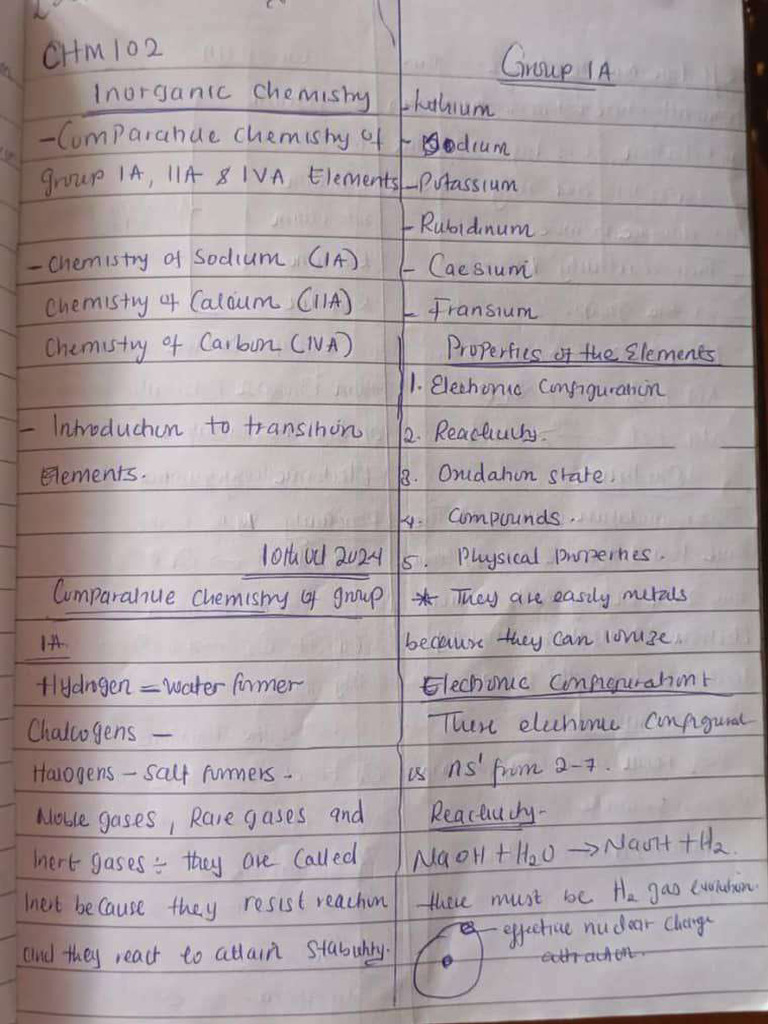 CHM102
Inorganic Chemistry
- Comparative chemistry of
group IA, IIA & IVA Elements
- Chemistry of Sodium (IA)
Chemistry of Calcium (IIA)
Chemistry of Carbon (IVA)
- Introduction to transition
Elements.
10th Oct 2024
Comparative chemistry of group
IA
Hydrogen = water former
Chalcogens -
Halogens - salt formers.
Noble gases, Rare gases and
Inert gases ÷ they are called
Inert because they resist reaction
and they react to attain stability.
Group IA
- Lithium
- Sodium
- Potassium
- Rubidinum
- Caesium
- Fransium
Properties of the Elements
1. Electronic Configuration
2. Reactivity.
3. Oxidation state
4. Compounds.
5. Physical properties.
* They are easily metals
because they can ionize.
Electronic Configuration
There electronic Configurat
is ns¹ from 2-7.
Reactivity-
NaOH + H₂O → NaOH + H₂.
there must be H₂ gas evolution.
- effective nuclear charge
attraction.